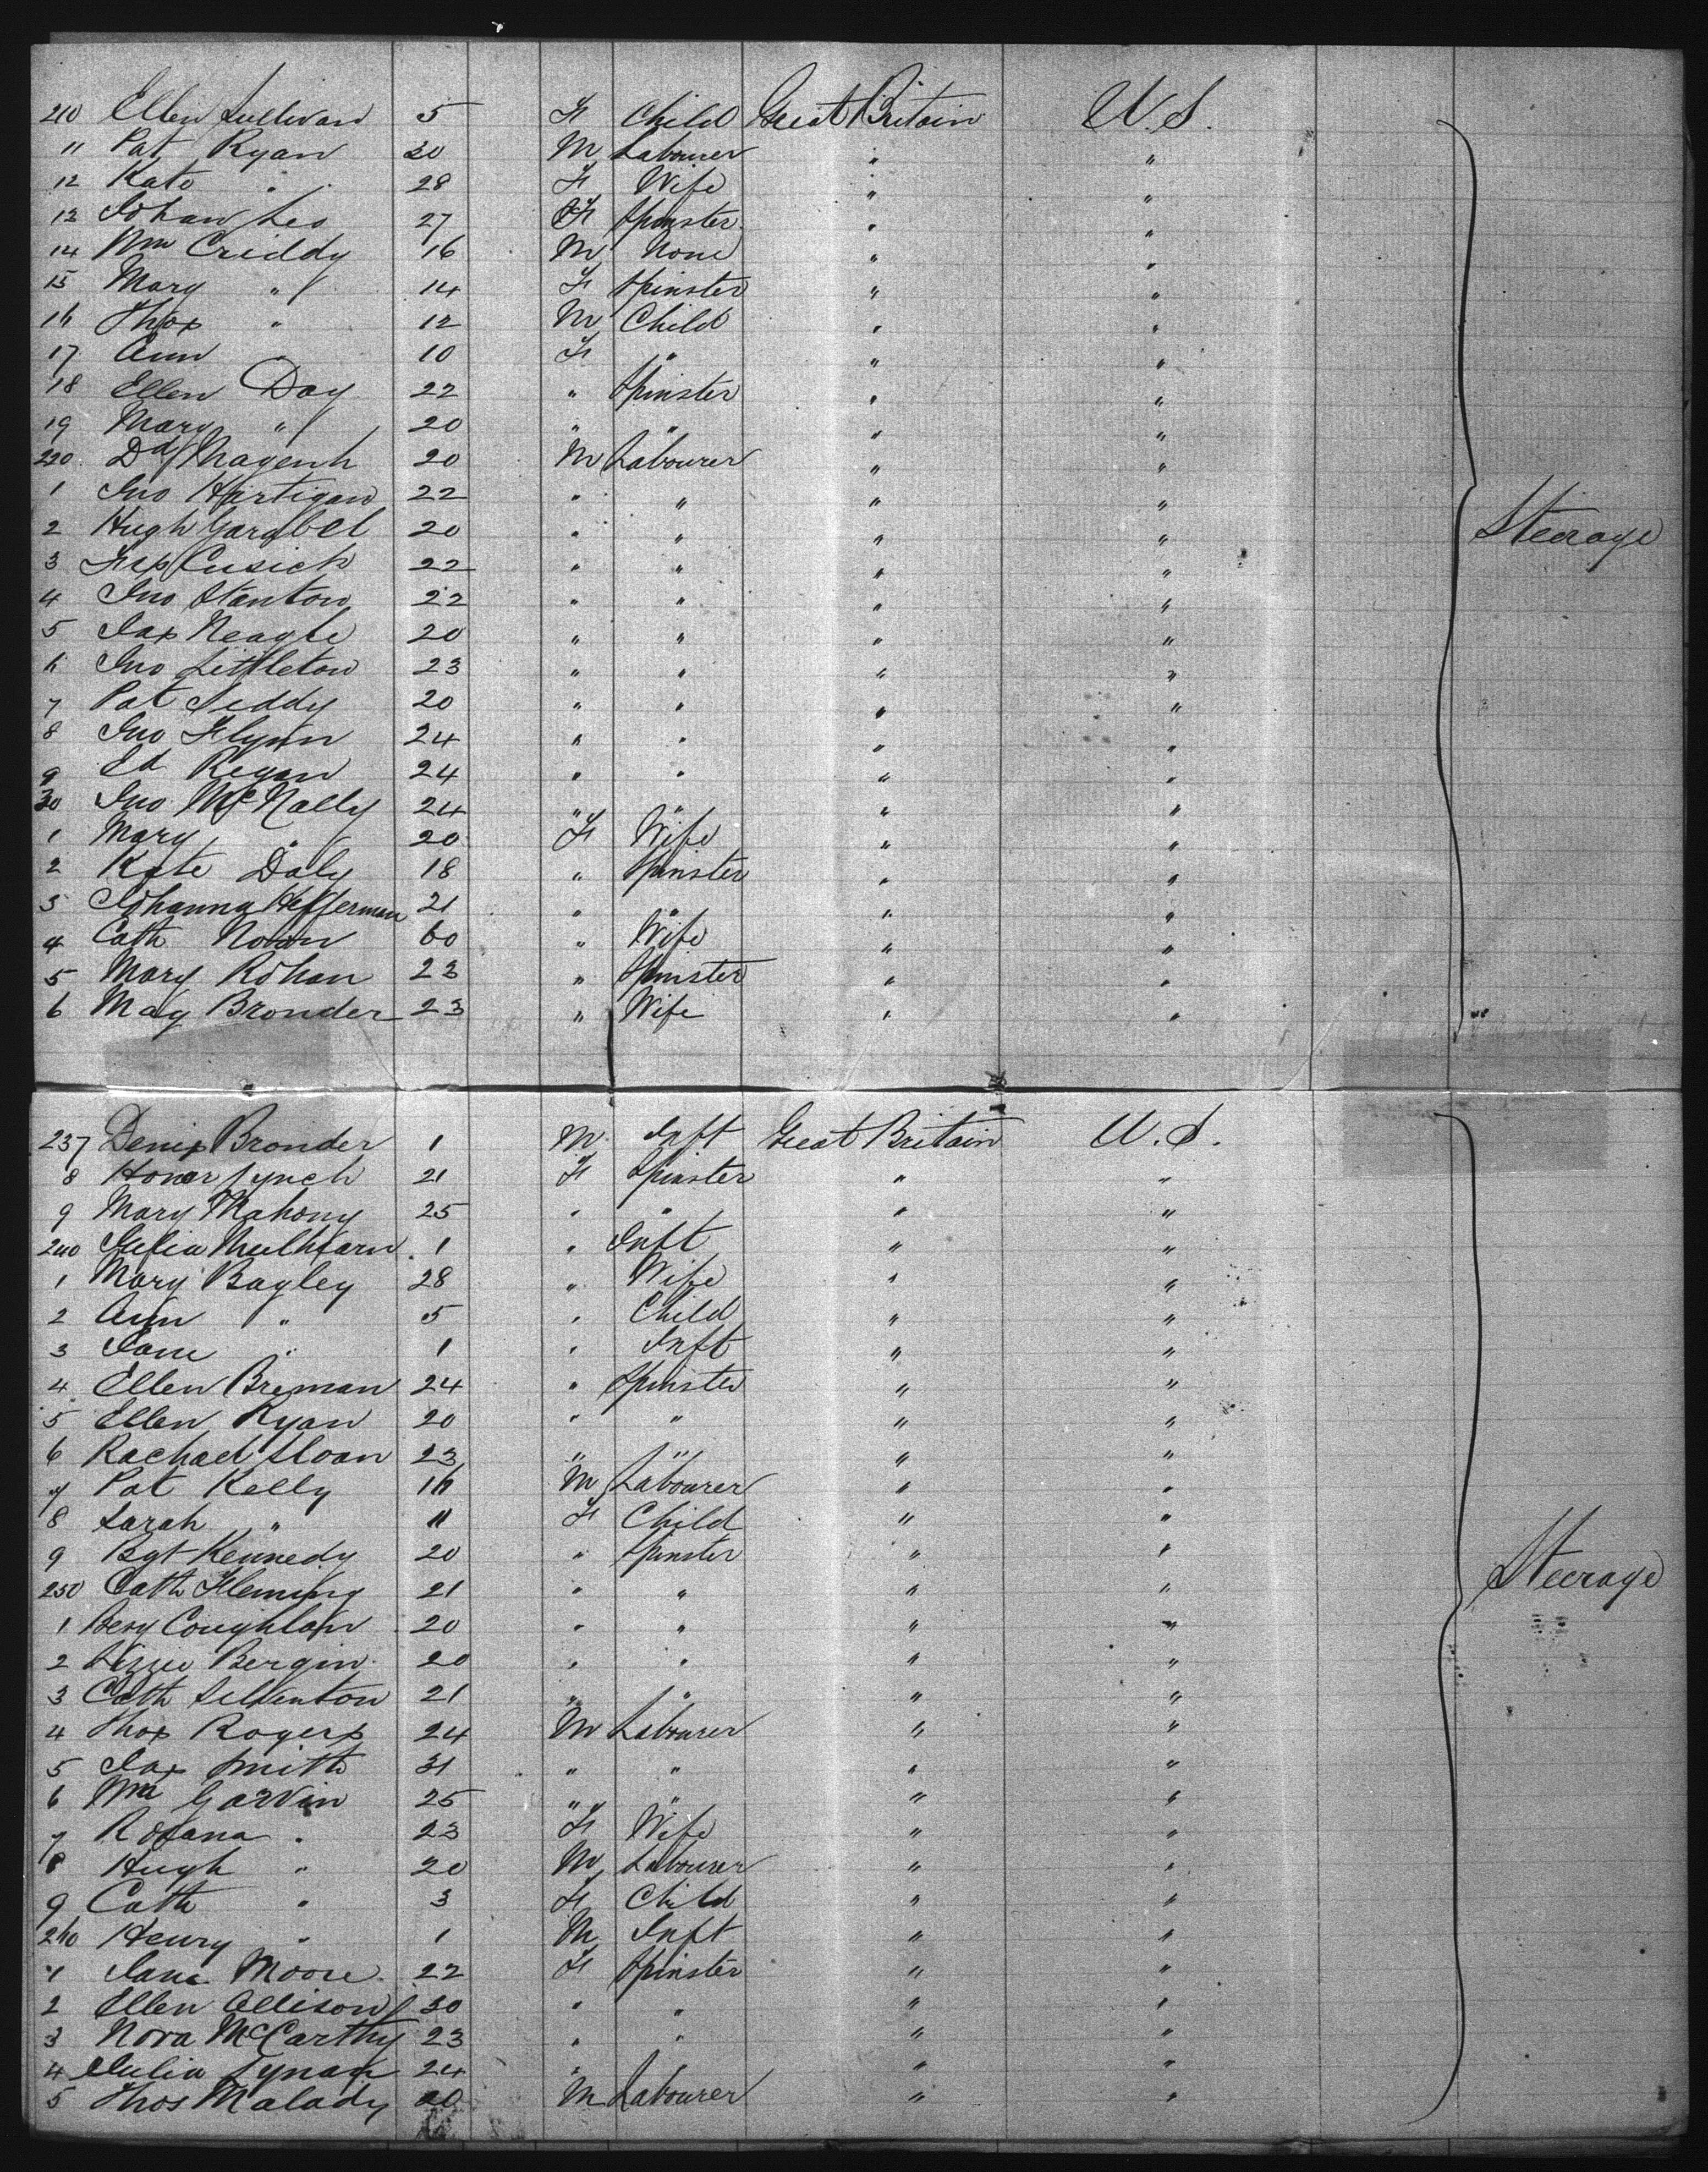 210 Ellen Sullivan 5 F Child Great Britain U.S.
11 Pat Ryan 30 M Labourer " "
12 Kate " 28 F Wife " "
13 Johan Leo 27 F Spinster " "
14 Wm Criddy 16 M None " "
15 Mary " 14 F Spinster " "
16 Thos " 12 M Child " "
17 Ann " 10 F " " "
18 Ellen Day 22 " Spinster " "
19 Mary " 20 " " " "
220 Dd 20 M Labourer " "
1 Jno Hartigan 22 " " " "
2 Hugh 20 " " " "
3 Cusick 22 " " " "
Steerage
4 Jno Stanton 22 " " " "
5 Jas Neagle 20 " " " "
6 Jno Littleton 23 " " " "
7 Pat Leddy 20 " " " "
8 Jno Flynn 24 " " " "
9 Ed Regan 24 " " " "
30 Jno McNally 24 " " " "
1 Mary " 20 F Wife " "
2 Kate Daly 18 " Spinster " "
3 Johanna Hefferman 21 " " " "
4 Cath 60 " Wife " "
5 Mary Rohan 23 " Spinster " "
6 May Bronder 23 " Wife " "
237 Denis Bronder 1 M Inft Great Britain U.S.
8 Honor Lynch 21 F Spinster " "
9 Mary Mahony 25 " " " "
240 Julia Mulhearn 1 " Inft " "
1 Mary Bagley 28 " Wife " "
2 Ann " 5 " Child " "
3 Jane " 1 " Inft " "
4 Ellen Breman 24 " Spinster " "
5 Ellen Ryan 20 " " " "
6 Rachael Sloan 23 " " " "
7 Pat Kelly 16 M Labourer " "
8 Sarah " 11 F Child " "
9 Bgt Kennedy 20 " Spinster " "
250 Cath Fleming 21 " " " "
Steerage
1 Coughlan 20 " " " "
2 Lizzie Bergin 20 " " " "
3 Cath 21 " " " "
4 Thos Rogers 24 M Labourer " "
5 Jas Smith 31 " " " "
6 Wm Garvin 25 " " " "
7 Rosana " 23 F Wife " "
8 Hugh " 20 M Labourer " "
9 Cath " 3 F Child " "
260 Henry " 1 M Inft " "
1 Jane Moore 22 F Spinster " "
2 Ellen Allison 30 " " " "
3 Nora McCarthy 23 " " " "
4 Julia Lynan 24 " " "
5 Thos Malady 20 M Labourer " "